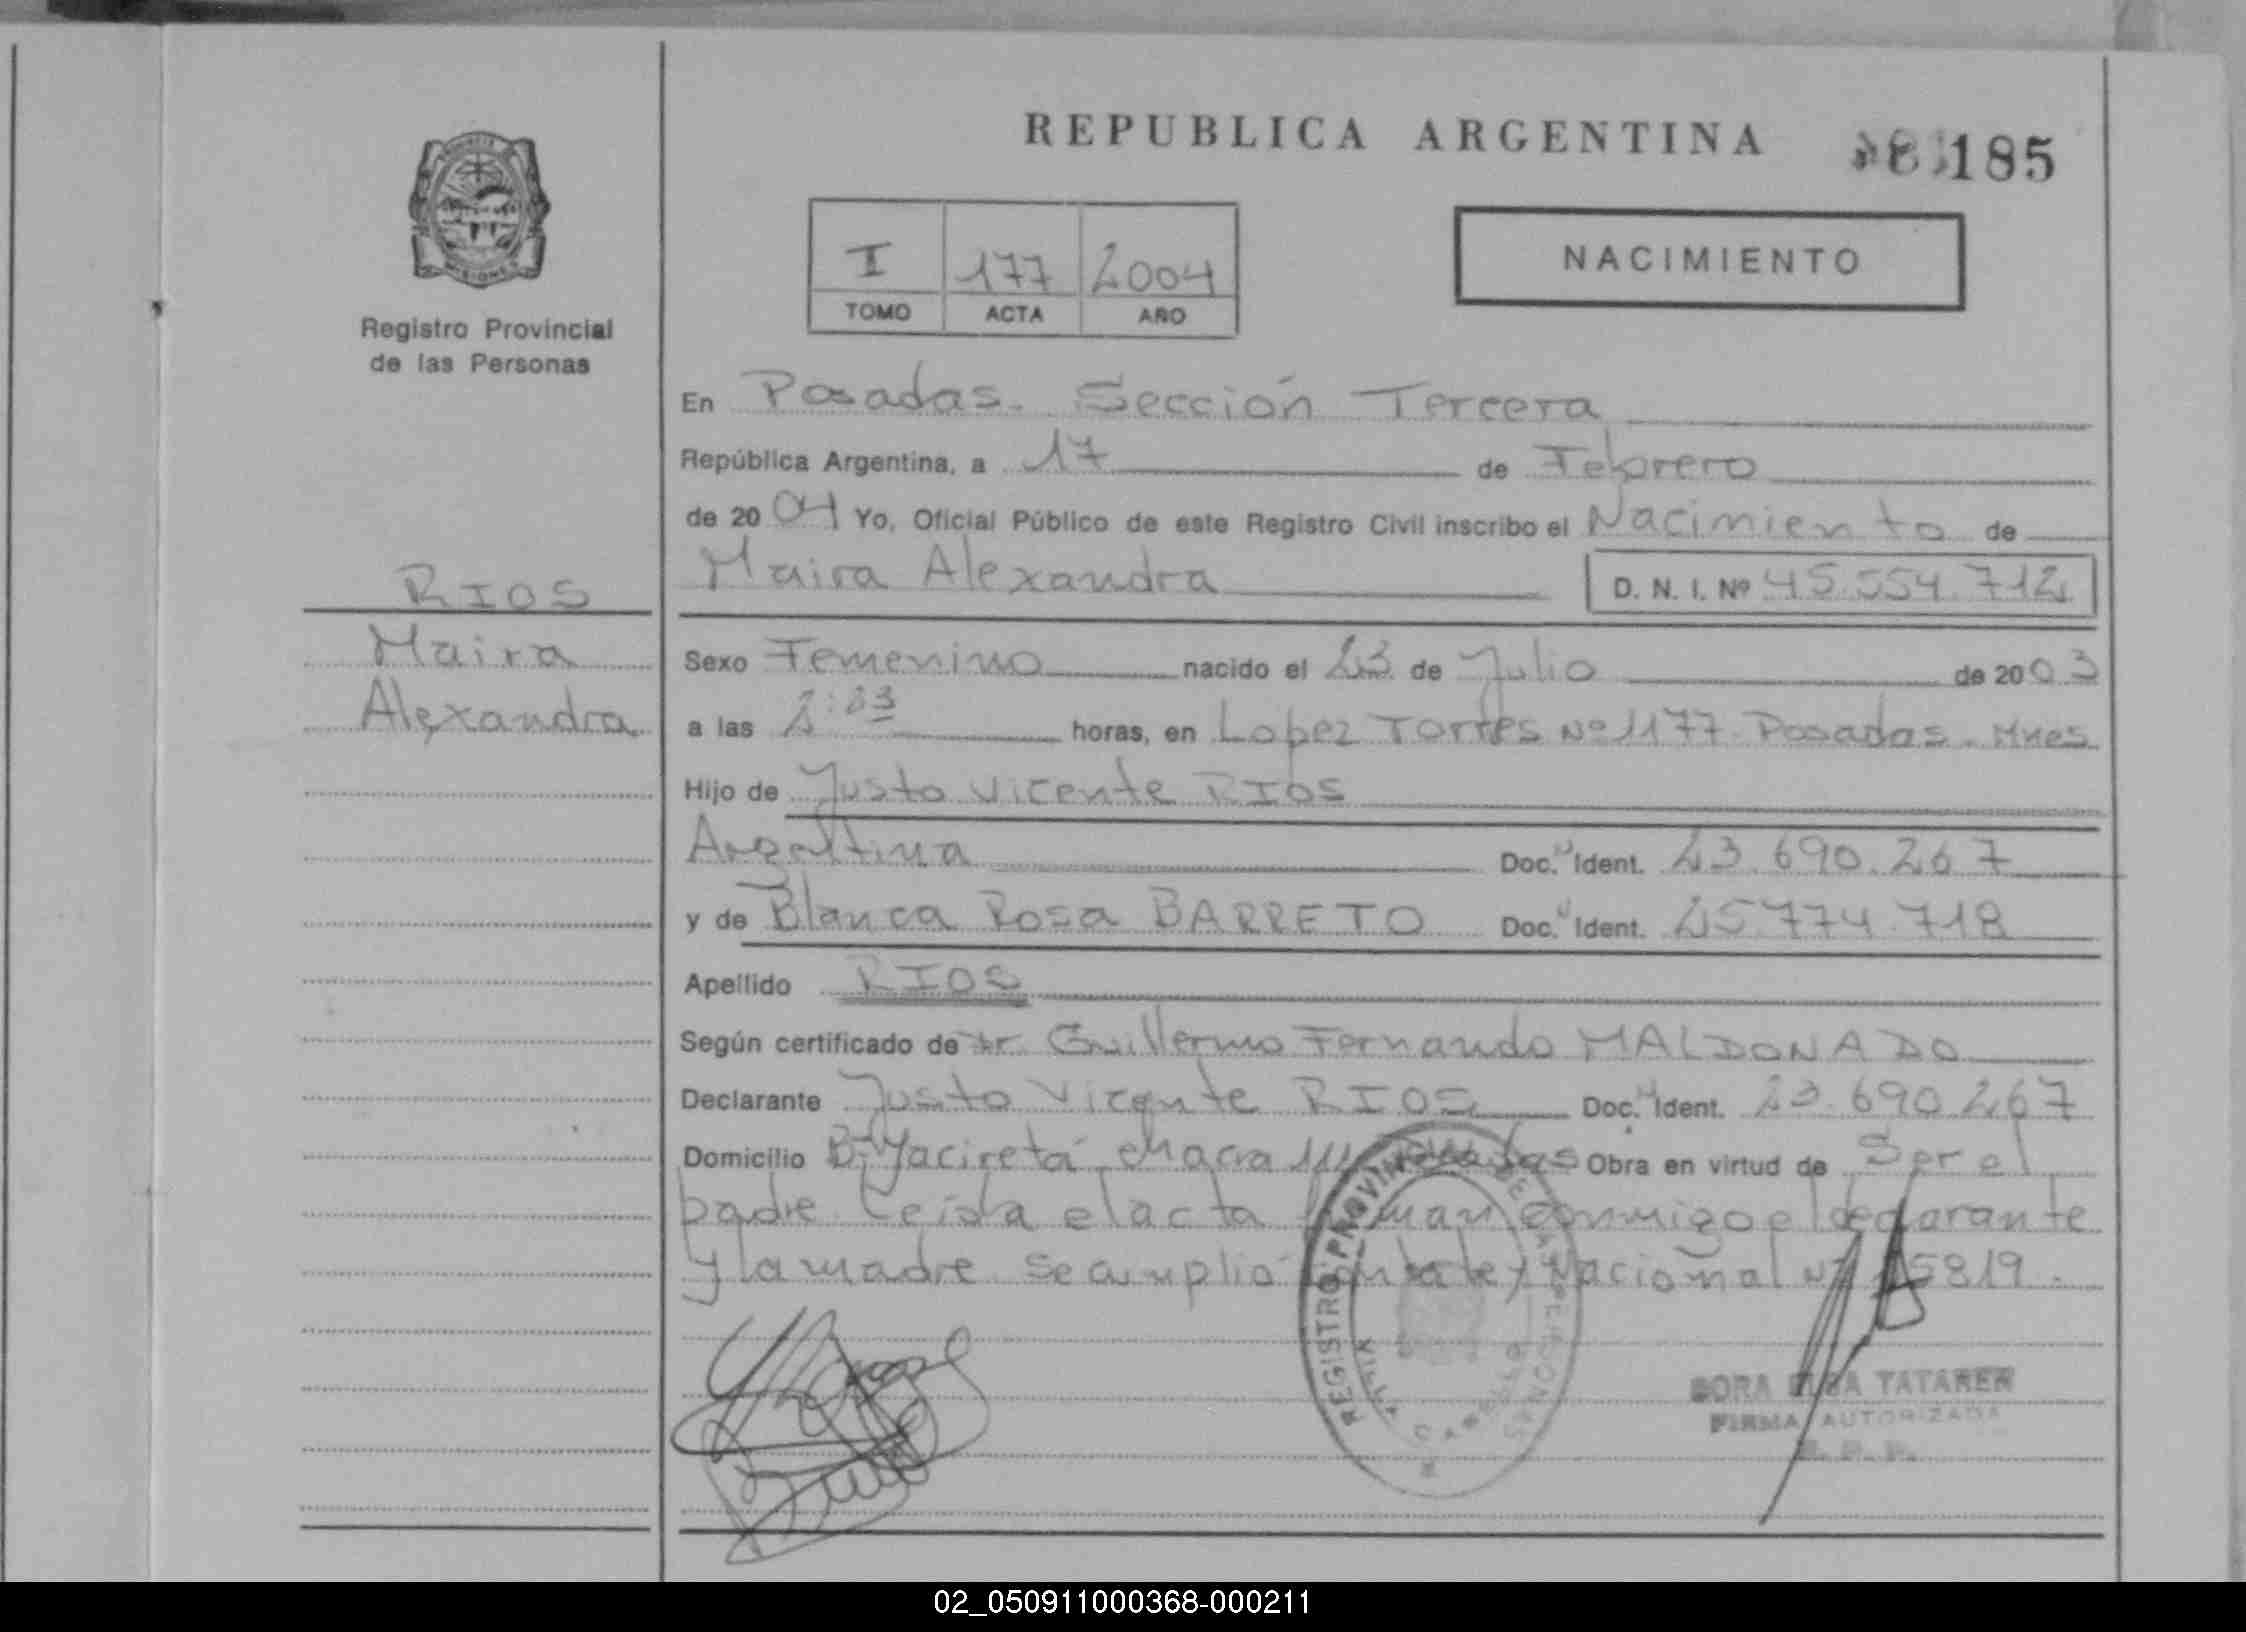 REPUBLICA ARGENTINA
185
MISIONES
Registro Provincial
de las Personas
I 177 2004
TOMO ACTA AÑO
NACIMIENTO
En Posadas. Sección Tercera
República Argentina, a 17 de Febrero
de 2004 Yo, Oficial Público de este Registro Civil inscribo el Nacimiento de
Maira Alexandra D. N. I. Nº 45.554.712
RIOS
Maira
Alexandra
Sexo Femenino nacido el 23 de Julio de 2003
a las horas, en Lopez Torres Nº 1177. Posadas. Mnes
Hijo de Justo Vicente RIOS
Argentina Doc. Ident. 23.690.267
y de Blanca Rosa BARRETO Doc. Ident. 25.774.718
Apellido RIOS
Según certificado de Dr. Guillermo Fernando MALDONADO
Declarante Justo Vicente RIOS Doc. Ident. 23.690.267
Domicilio Bº Yacireta chacra Obra en virtud de Ser el
padre Leida el acta firman conmigo el declarante
y la madre se cumplio Ley Nacional Nº 25819.
REGISTRO PROVINCIAL DE LAS PERSONAS
TATAREN
FIRMA AUTORIZADA
R. P. P.
02_050911000368-000211